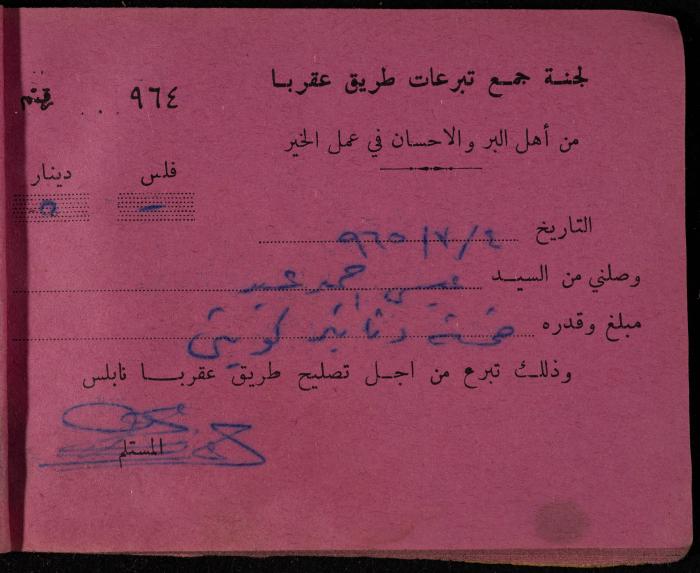 لجنة جمع تبرعات طريق عقربا
٩٦٤
من أهل البر والاحسان في عمل الخير
فلس دينار
— ٥
التاريخ ٤/٧/٩٦٥
وصلني من السيد عيسى احمد عبيد
مبلغ وقدره خمسة دنانير كويتي
وذلك تبرع من اجل تصليح طريق عقربا نابلس
المستلم